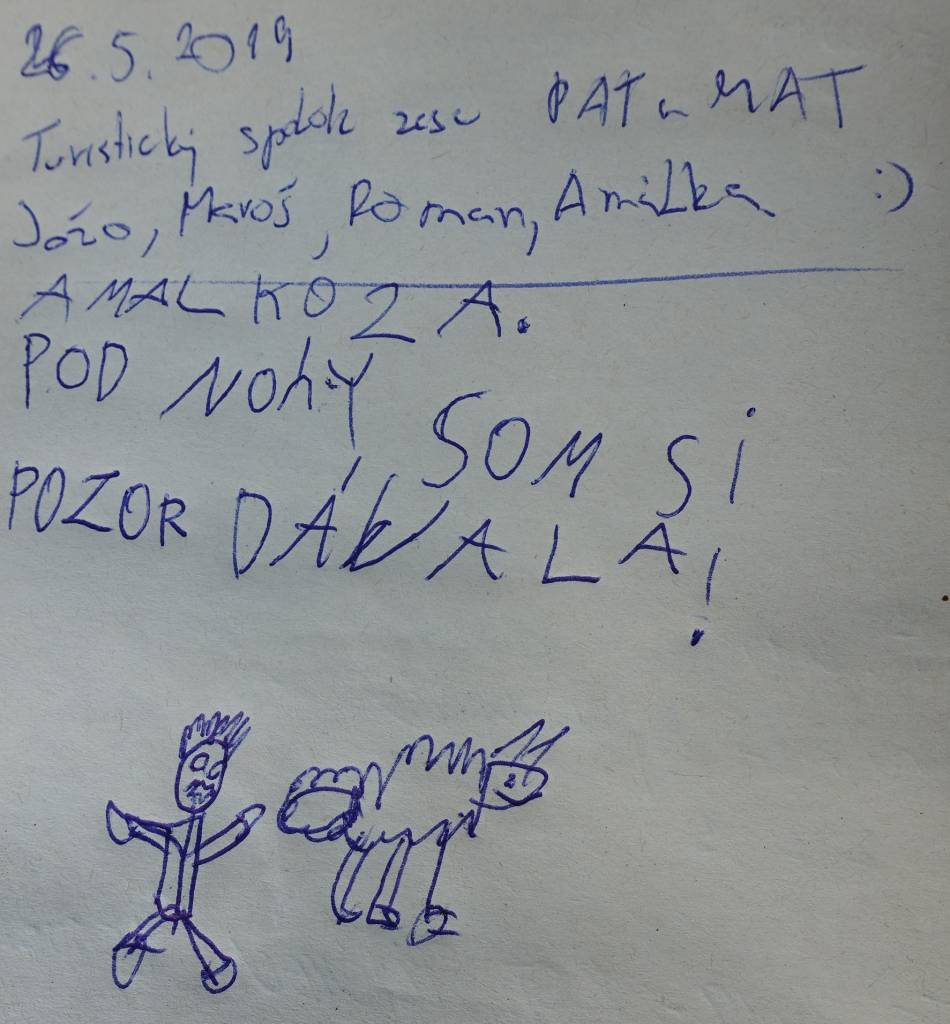 26.5.2019
Turistický spolok zase PAT a MAT
Jožo, Maroš, Roman, Amálka :)
AMAL KOZA.
POD NOHY SOM SI
POZOR DÁVALA!